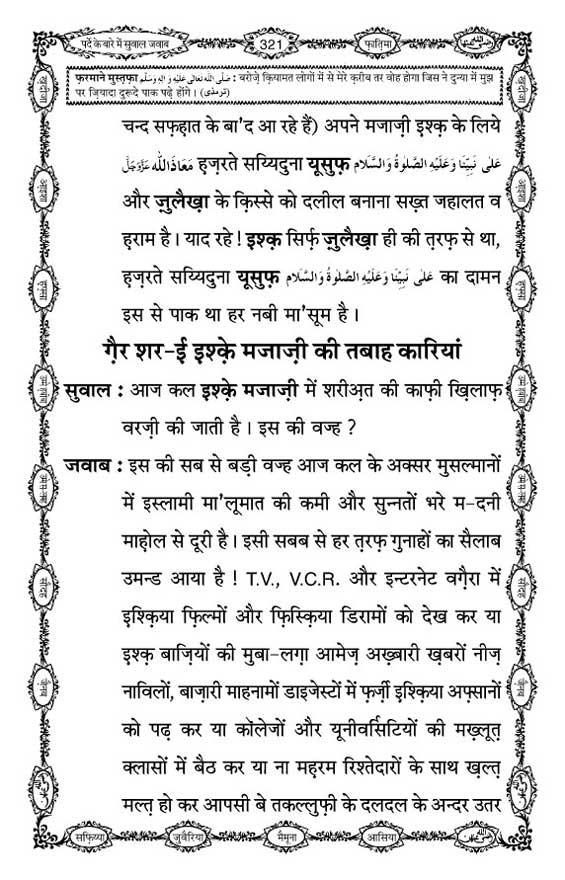 पर्दे के बारे में सुवाल जवाब 321 फ़ातिमा
फ़रमाने मुस्तफ़ा صَلَّى اللهُ تَعَالٰى عَلَيْهِ وَاٰلِهٖ وَسَلَّم : बरोज़े क़ियामत लोगों में से मेरे क़रीब तर वोह होगा जिस ने दुन्या में मुझ
पर ज़ियादा दुरूदे पाक पढ़े होंगे । (ترمذی)
चन्द सफ़हात के बा'द आ रहे हैं) अपने मजाज़ी इश्क़ के लिये
हज़रते सय्यिदुना यूसुफ़ عَلٰى نَبِيِّنَا وَعَلَيْهِ الصَّلٰوةُ وَالسَّلَام مَعَاذَاللّٰه عَزَّوَجَلَّ
और ज़ुलैख़ा के क़िस्से को दलील बनाना सख़्त जहालत व
हराम है । याद रहे ! इश्क़ सिर्फ़ ज़ुलैख़ा ही की त़रफ़ से था,
हज़रते सय्यिदुना यूसुफ़ عَلٰى نَبِيِّنَا وَعَلَيْهِ الصَّلٰوةُ وَالسَّلَام का दामन
इस से पाक था हर नबी मा'सूम है ।
ग़ैर शर-ई इश्क़े मजाज़ी की तबाह कारियां
सुवाल : आज कल इश्क़े मजाज़ी में शरीअ़त की काफ़ी ख़िलाफ़
वरज़ी की जाती है । इस की वज्ह ?
जवाब : इस की सब से बड़ी वज्ह आज कल के अक्सर मुसल्मानों
में इस्लामी मा'लूमात की कमी और सुन्नतों भरे म-दनी
माहोल से दूरी है । इसी सबब से हर त़रफ़ गुनाहों का सैलाब
उमन्ड आया है ! T.V., V.C.R. और इन्टरनेट वग़ैरा में
इश्क़िया फ़िल्मों और फ़िस्क़िया डिरामों को देख कर या
इश्क़ बाज़ियों की मुबा-लग़ा आमेज़ अख़्बारी ख़बरों नीज़
नाविलों, बाज़ारी माहनामों डाइजेस्टों में फ़र्ज़ी इश्क़िया अफ़्सानों
को पढ़ कर या कॉलेजों और यूनीवर्सिटियों की मख़्लूत़
क्लासों में बैठ कर या ना महरम रिश्तेदारों के साथ ख़ल्त़
मल्त़ हो कर आपसी बे तकल्लुफ़ी के दलदल के अन्दर उतर
सफ़िय्या जुवैरिया मैमूना आसिया